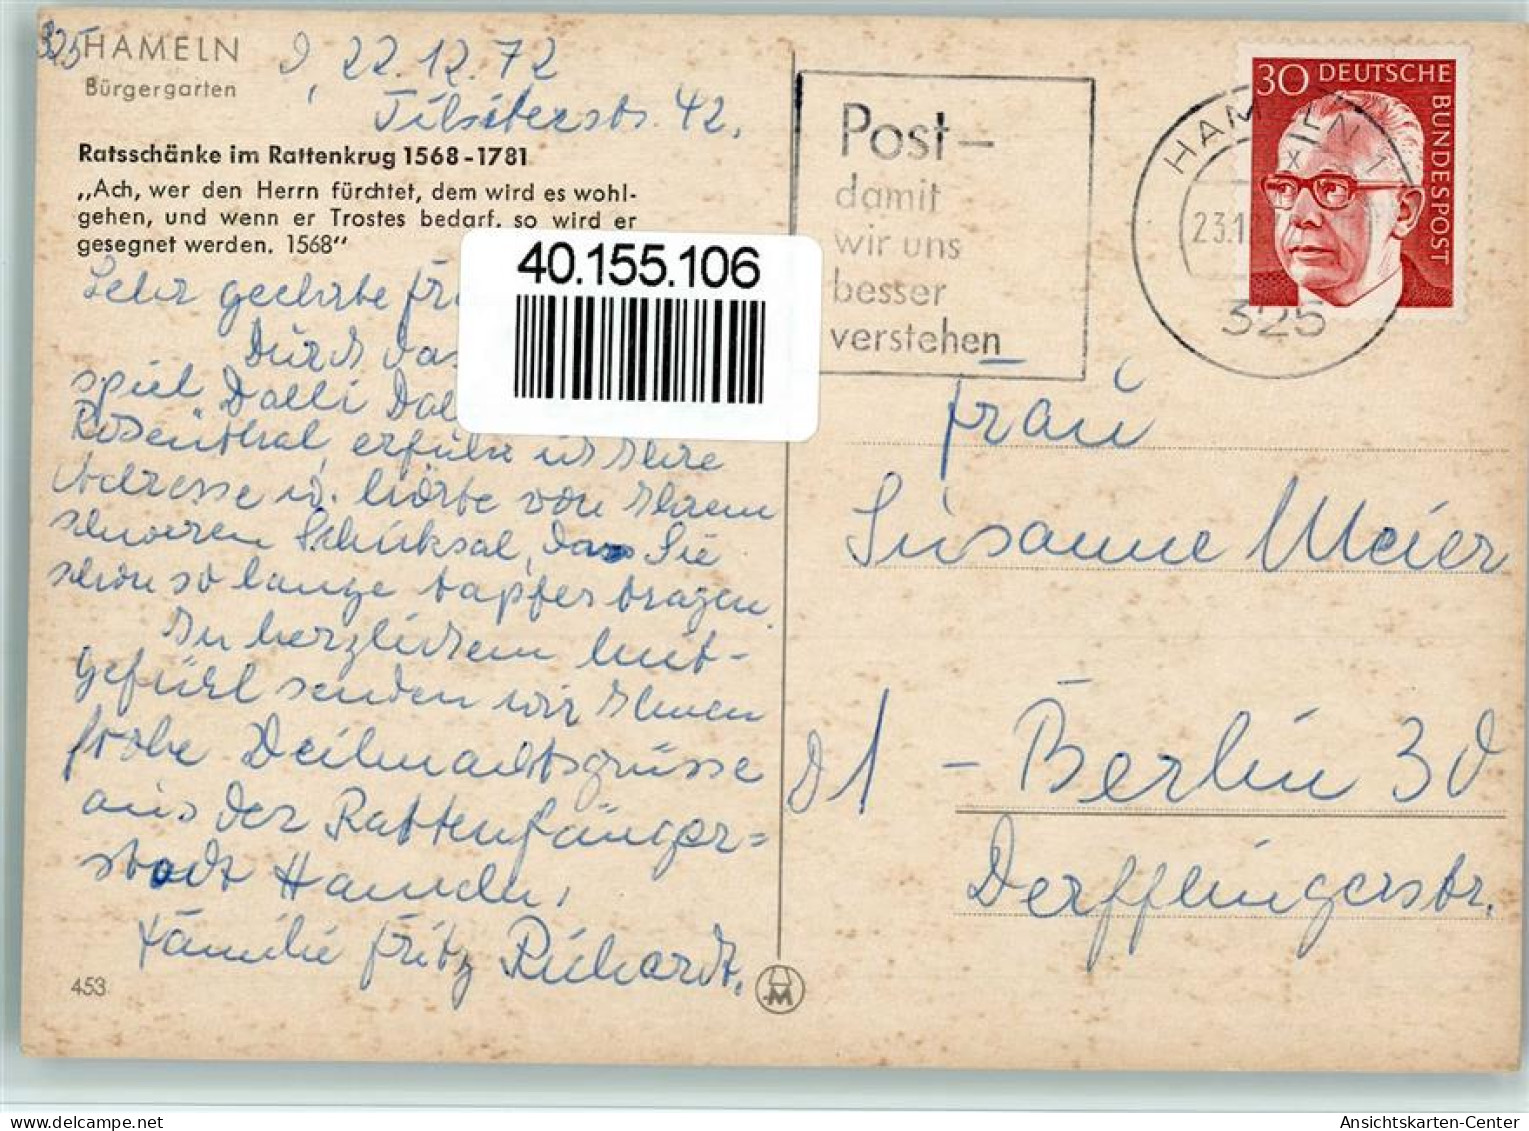 325 HAMELN
Bürgergarten
22.12.72
Tilsiterstr. 42.
Ratsschänke im Rattenkrug 1568-1781
„Ach, wer den Herrn fürchtet, dem wird es wohl-
gehen, und wenn er Trostes bedarf, so wird er
gesegnet werden. 1568“
40.155.106
Sehr geehrte
Durch das
spiel Dalli Dal
Rosenthal, erfuhr ich Ihre
Adresse u. hörte von Ihrem
schweren Schicksal, das Sie
schon so lange tapfer tragen.
In herzlichem Mit-
gefühl senden wir Ihnen
frohe Weihnachtsgrüsse
aus der Rattenfänger=
stadt Hameln,
Familie Fritz Richardt.
453
M
Post-
damit
wir uns
besser
verstehen
HAMELN 1
23.1
325
30 DEUTSCHE
BUNDESPOST
Frau
Susanne Meier
1 - Berlin 30
Derfflingerstr.
Ansichtskarten-Center